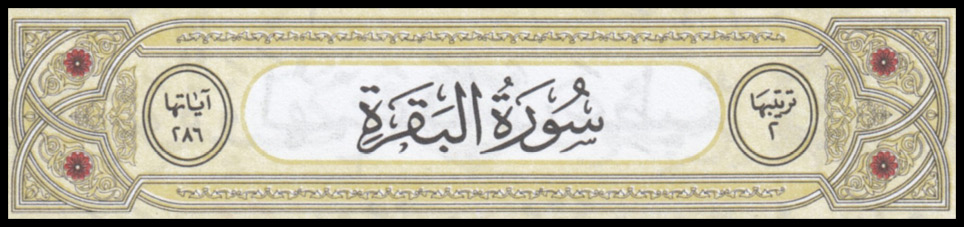 ترتيبها
٢
سُورَةُ البَقَرَةِ
آياتها
٢٨٦